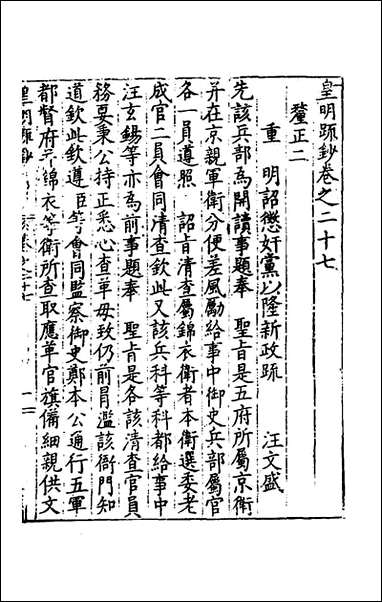 皇明疏鈔卷之二十七
釐正二
重明詔懲奸黨以隆新政疏 汪文盛
先該兵部為開讀事題奉 聖旨是五府所屬京衛
并在京親軍衛分便差風勵給事中御史兵部屬官
各一員遵照 詔旨清查屬錦衣衛者本衛選委老
成官二員會同清查欽此又該兵科等科都給事中
汪玄錫等亦為前事題奉 聖旨是各該清查官員
務要秉公持正悉心查革毋致仍前冒濫該衙門知
道欽此欽遵臣等會同監察御史鄭本公通行五軍
都督府并錦衣等衛所查取應革官旗備細親供文